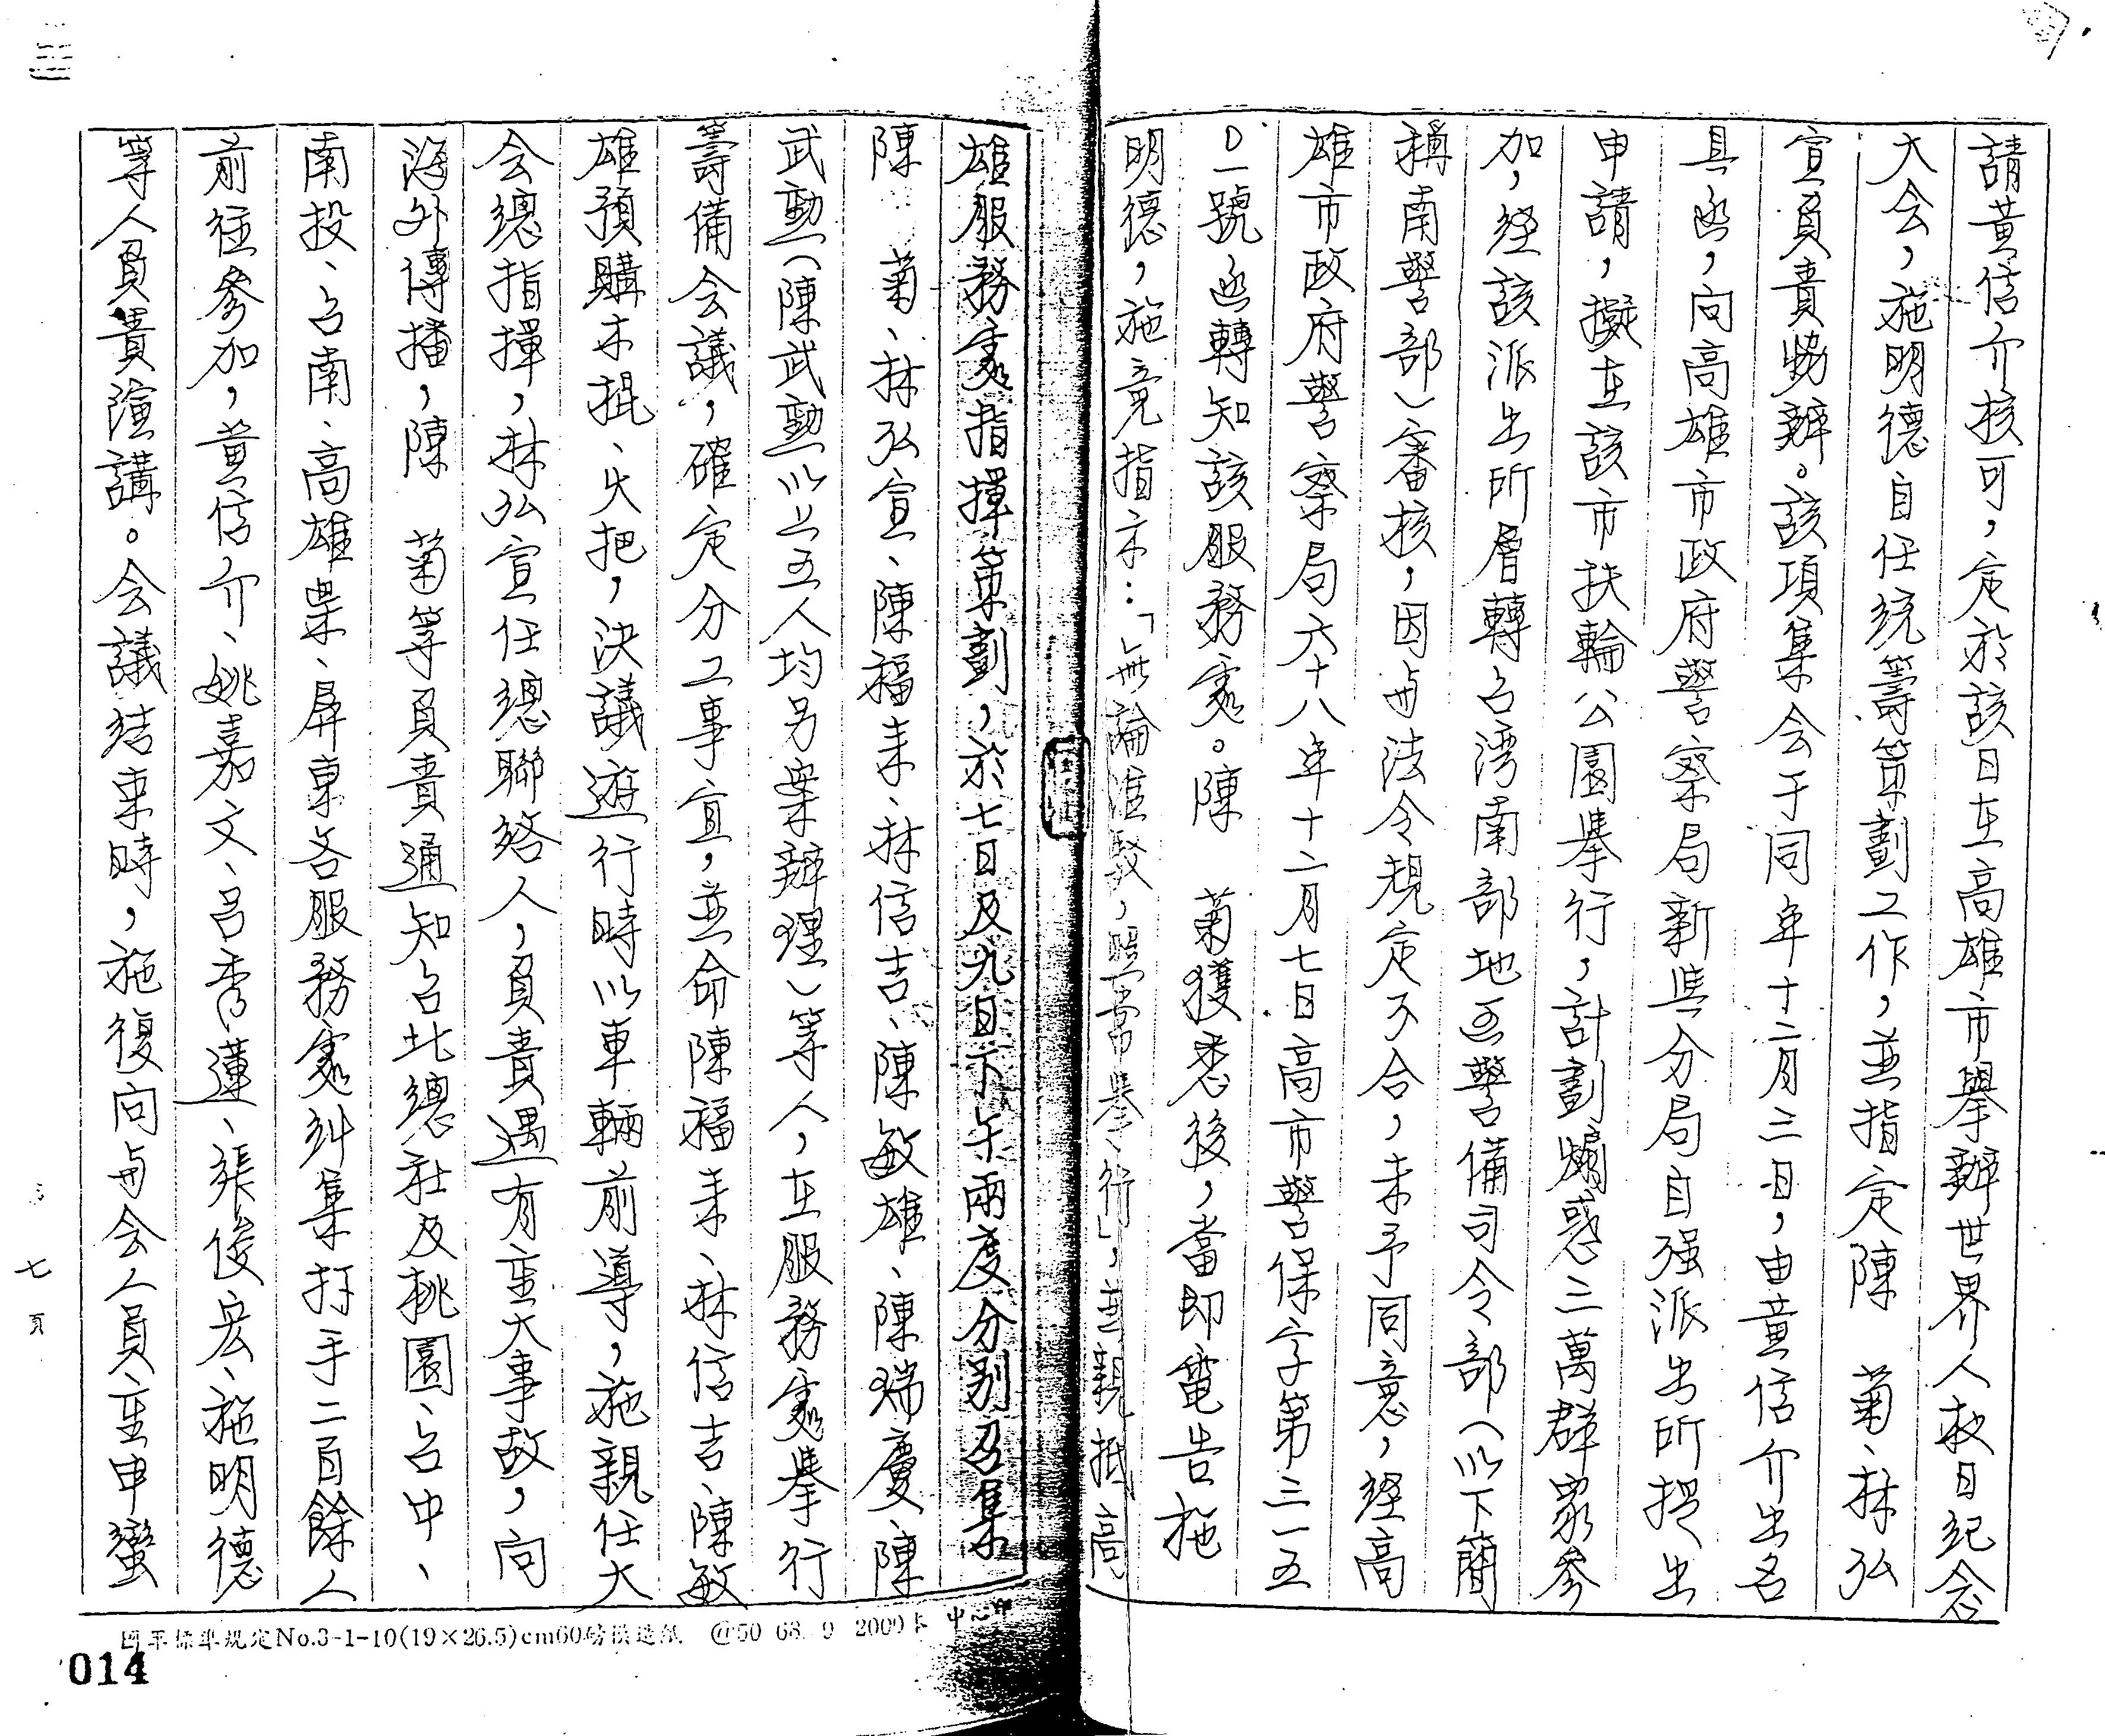 請黃信介核可，定於該日在高雄市舉辦世界人权日纪念
大会，施明德自任統籌策劃工作，並指定陳　菊、林弘
宣負責協辦。該項集会于同年十二月三日，由黃信介出名
具函，向高雄市政府警察局新興分局自强派出所提出
申請，擬在該市扶輪公園舉行，計劃煽惑三萬群眾參
加，经該派出所層轉台湾南部地區警備司令部（以下簡
稱南警部）審核，因与法令規定不合，未予同意，經高
雄市政府警察局六十八年十二月七日高市警保字第三一五
0一號函轉知該服務處。陳　菊獲悉後，當即電告施
明德，施竟指示：「無論准駁，照常舉行」，並親抵高
雄服務處指揮策劃，於七日及九日下午兩度分别召集
陳　菊、林弘宣、陳福来、林信吉、陳敏雄、陳瑞慶、陳
武勳（陳武勳以上五人均另案辦理）等人，在服務處舉行
籌備会議，確定分工事宜，並命陳福来、林信吉、陳敏
雄預購木棍、火把，決議遊行時以車輛前導，施親任大
会總指揮，林弘宣任總聯络人，負責遇有重大事故，向
海外傳播，陳　菊等負責通知台北總社及桃園、台中、
南投、台南、高雄县、屏東各服務處糾集打手二百餘人
前往參加，黃信介、姚嘉文、呂秀蓮、張俊宏、施明德
等人員責演講。会議结束時，施復向与会人員重申蠻
七頁
國軍標準規定No.3-1-10(19×26.5)cm60磅模造紙 @50 68. 9 2000卡
014